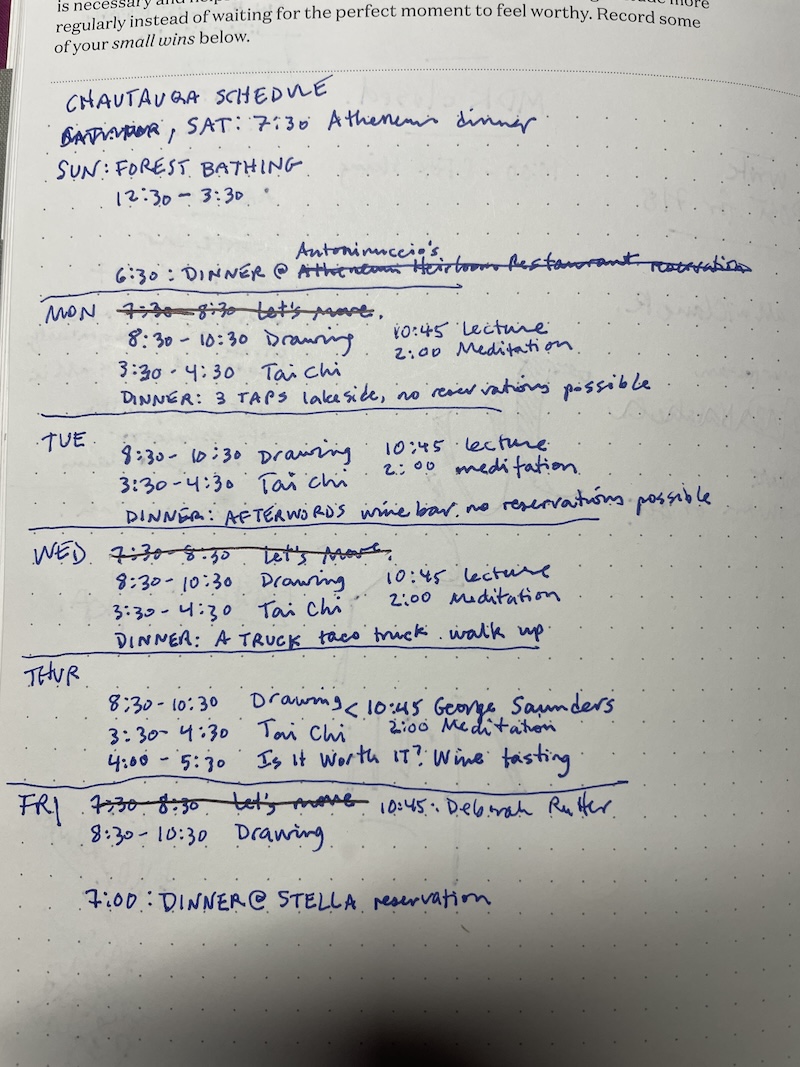 is necessary and
regularly instead of waiting for the perfect moment to feel worthy. Record some
of your small wins below.
CHAUTAUQA SCHEDULE
, SAT: 7:30 Atheneum dinner
SUN: FOREST BATHING
12:30 - 3:30
Antoninuccio's
6:30 : DINNER @ Atheneum Heirloom Restaurant reservation
MON 7:30 - 8:30 Let's move.
8:30 - 10:30 Drawing 10:45 Lecture
2:00 Meditation
3:30 - 4:30 Tai Chi
DINNER: 3 TAPS lakeside, no reservations possible
TUE
8:30 - 10:30 Drawing 10:45 lecture
3:30 - 4:30 Tai Chi 2:00 meditation
DINNER: AFTERWORDS wine bar. no reservations possible
WED 7:30 - 8:30 Let's Move.
8:30 - 10:30 Drawing 10:45 lecture
3:30 - 4:30 Tai Chi 2:00 Meditation
DINNER: A TRUCK taco truck. walk up
THUR
8:30 - 10:30 Drawing < 10:45 George Saunders
3:30 - 4:30 Tai Chi 2:00 Meditation
4:00 - 5:30 Is It Worth IT? Wine tasting
FRI 7:30 - 8:30 Let's move 10:45: Deborah Rutter
8:30 - 10:30 Drawing
7:00 : DINNER @ STELLA reservation